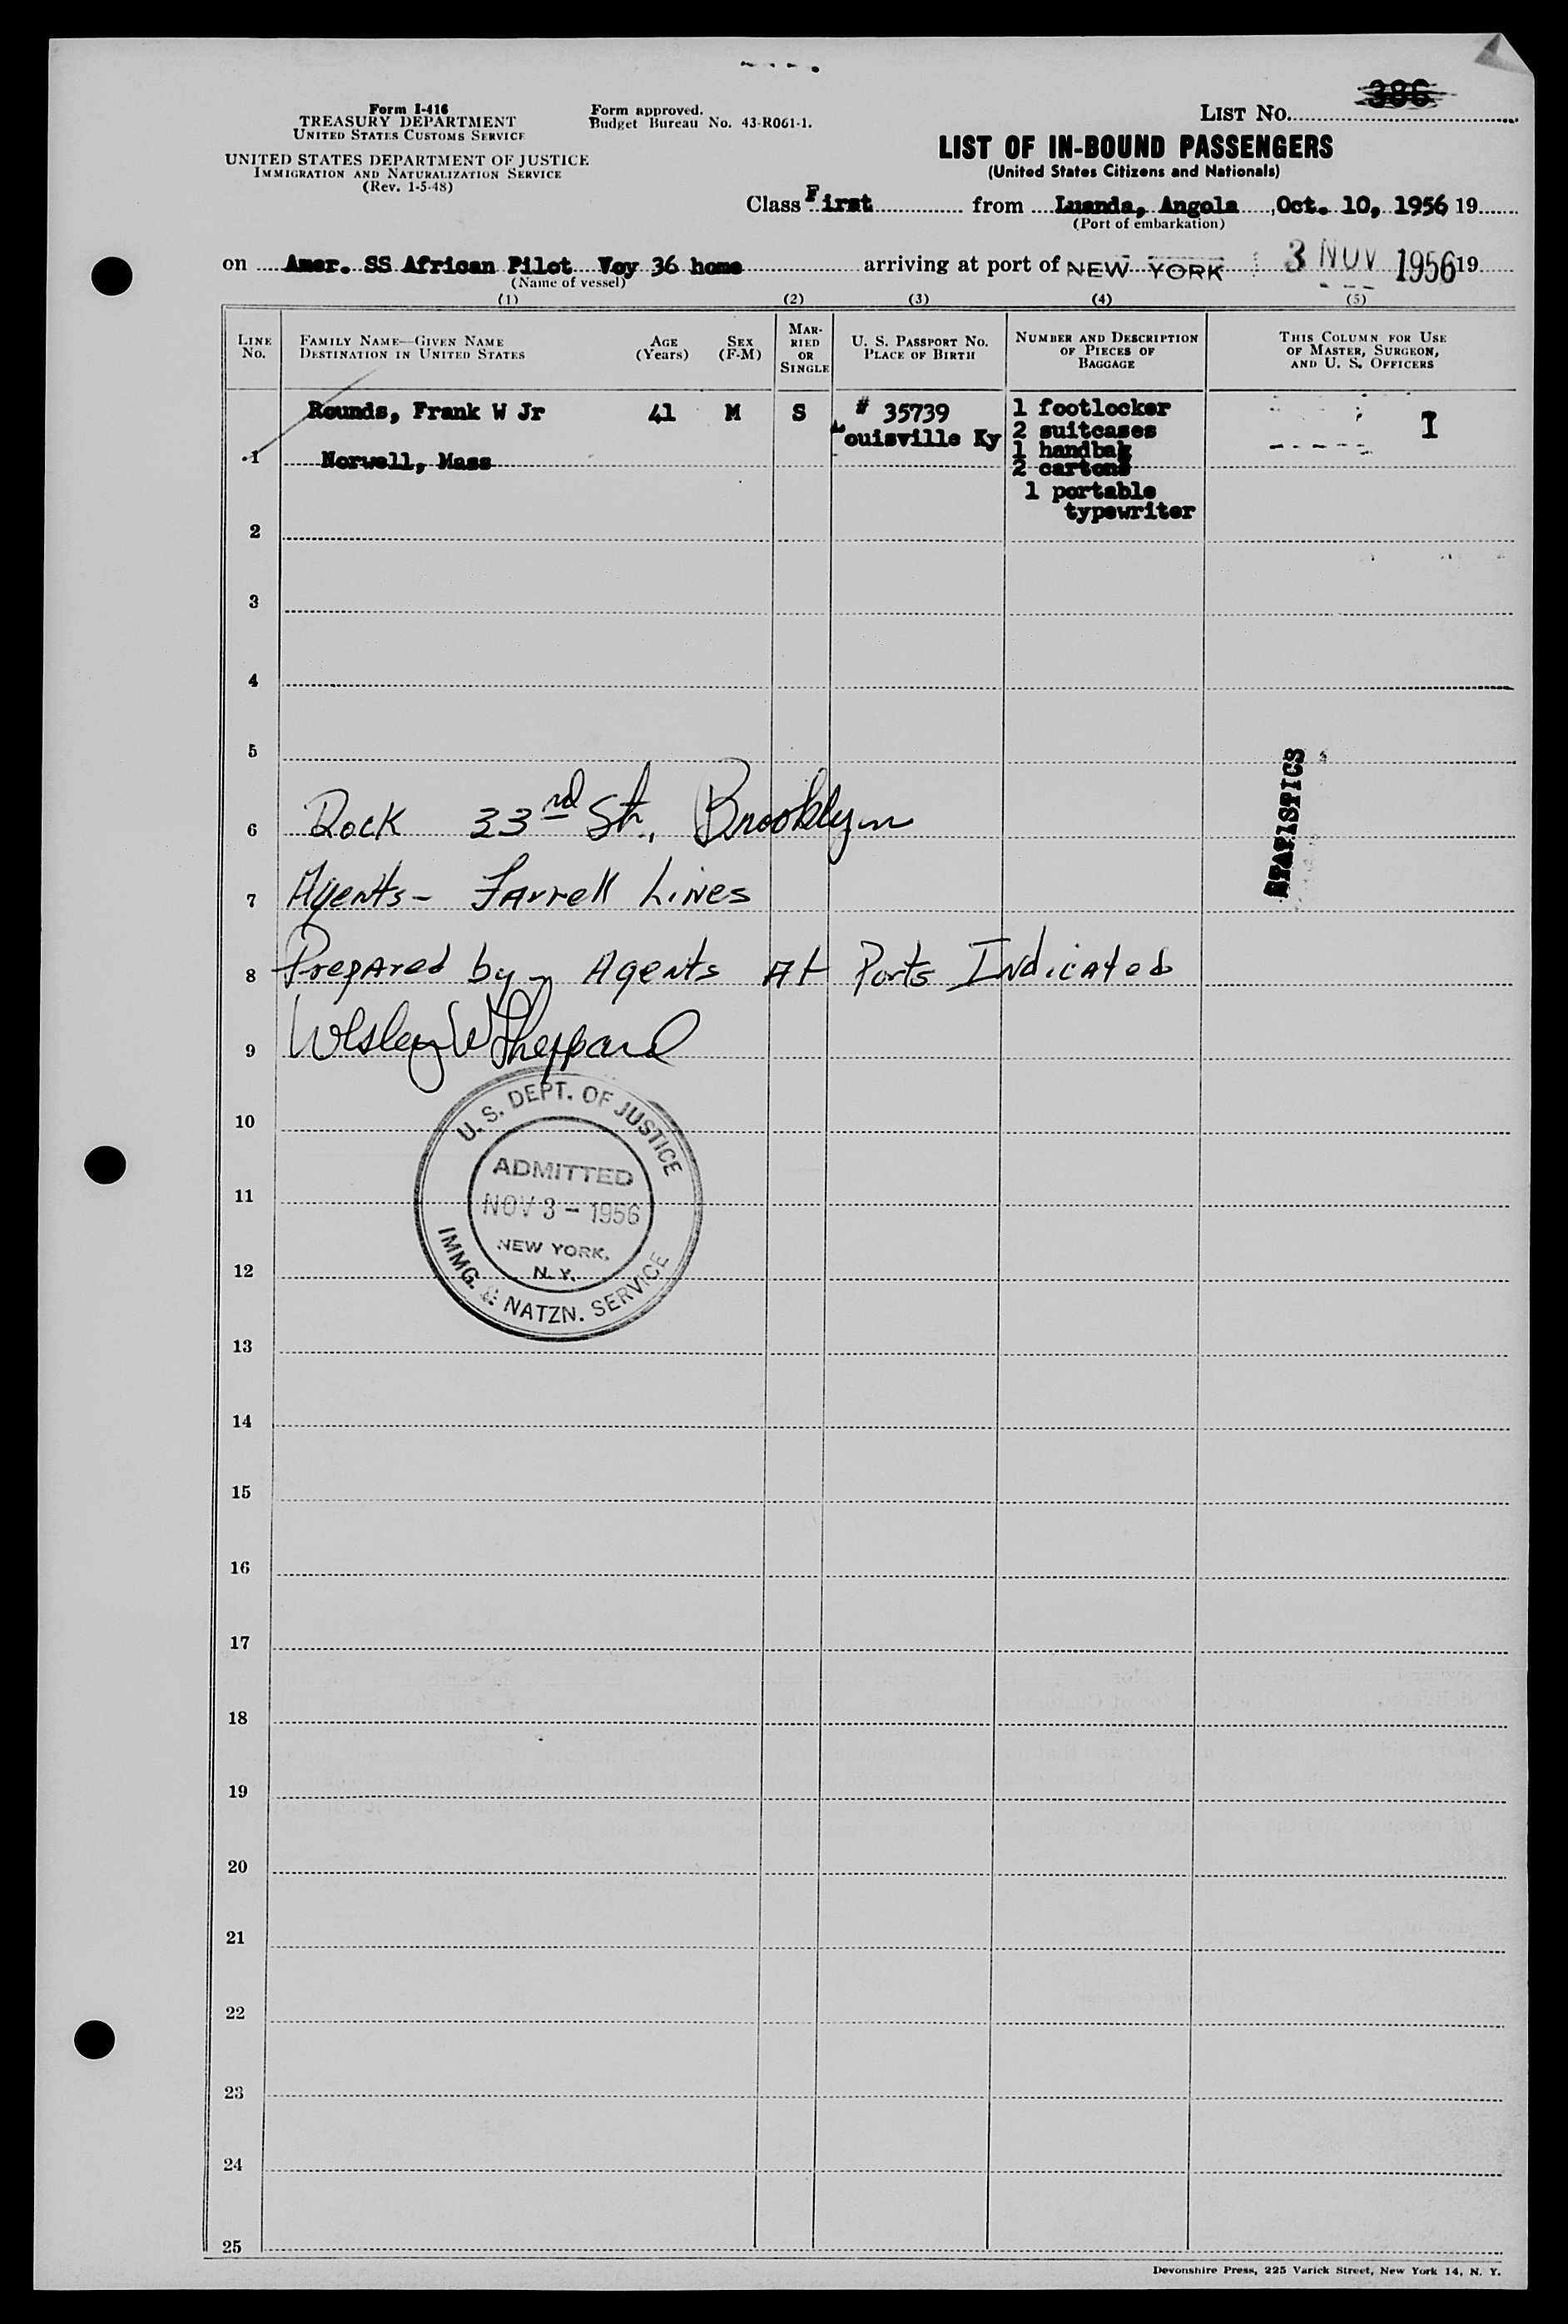 Form I-416
TREASURY DEPARTMENT
UNITED STATES CUSTOMS SERVICE
UNITED STATES DEPARTMENT OF JUSTICE
IMMIGRATION AND NATURALIZATION SERVICE
(Rev. 1-5-48)
Form approved.
Budget Bureau No. 43-R061-1.
LIST NO. 386
LIST OF IN-BOUND PASSENGERS
(United States Citizens and Nationals)
Class First from Luanda, Angola, Oct. 10, 1956 19
(Port of embarkation)
on Amer. SS African Pilot Voy 36 home arriving at port of NEW YORK 3 NOV 1956 19
(Name of vessel)
(1) (2) (3) (4) (5)
LINE NO.
FAMILY NAME—GIVEN NAME
DESTINATION IN UNITED STATES
AGE (Years)
SEX (F-M)
MARRIED OR SINGLE
U. S. PASSPORT NO.
PLACE OF BIRTH
NUMBER AND DESCRIPTION OF PIECES OF BAGGAGE
THIS COLUMN FOR USE OF MASTER, SURGEON, AND U. S. OFFICERS
Rounds, Frank W Jr 41 M S # 35739 1 footlocker I
Louisville Ky 2 suitcases
1 handbag
1 Norwell, Mass 2 cartons
1 portable
typewriter
2
3
4
5
STATISTICS
6 Dock 33rd St., Brooklyn
7 Agents- Farrell Lines
8 Prepared by - Agents At Ports Indicated
9 Wesley W Sheppard
U. S. DEPT. OF JUSTICE
10
ADMITTED
11 NOV 3 - 1956
NEW YORK,
12 N. Y.
IMMG. & NATZN. SERVICE
13
14
15
16
17
18
19
20
21
22
23
24
25
Devonshire Press, 225 Varick Street, New York 14, N. Y.